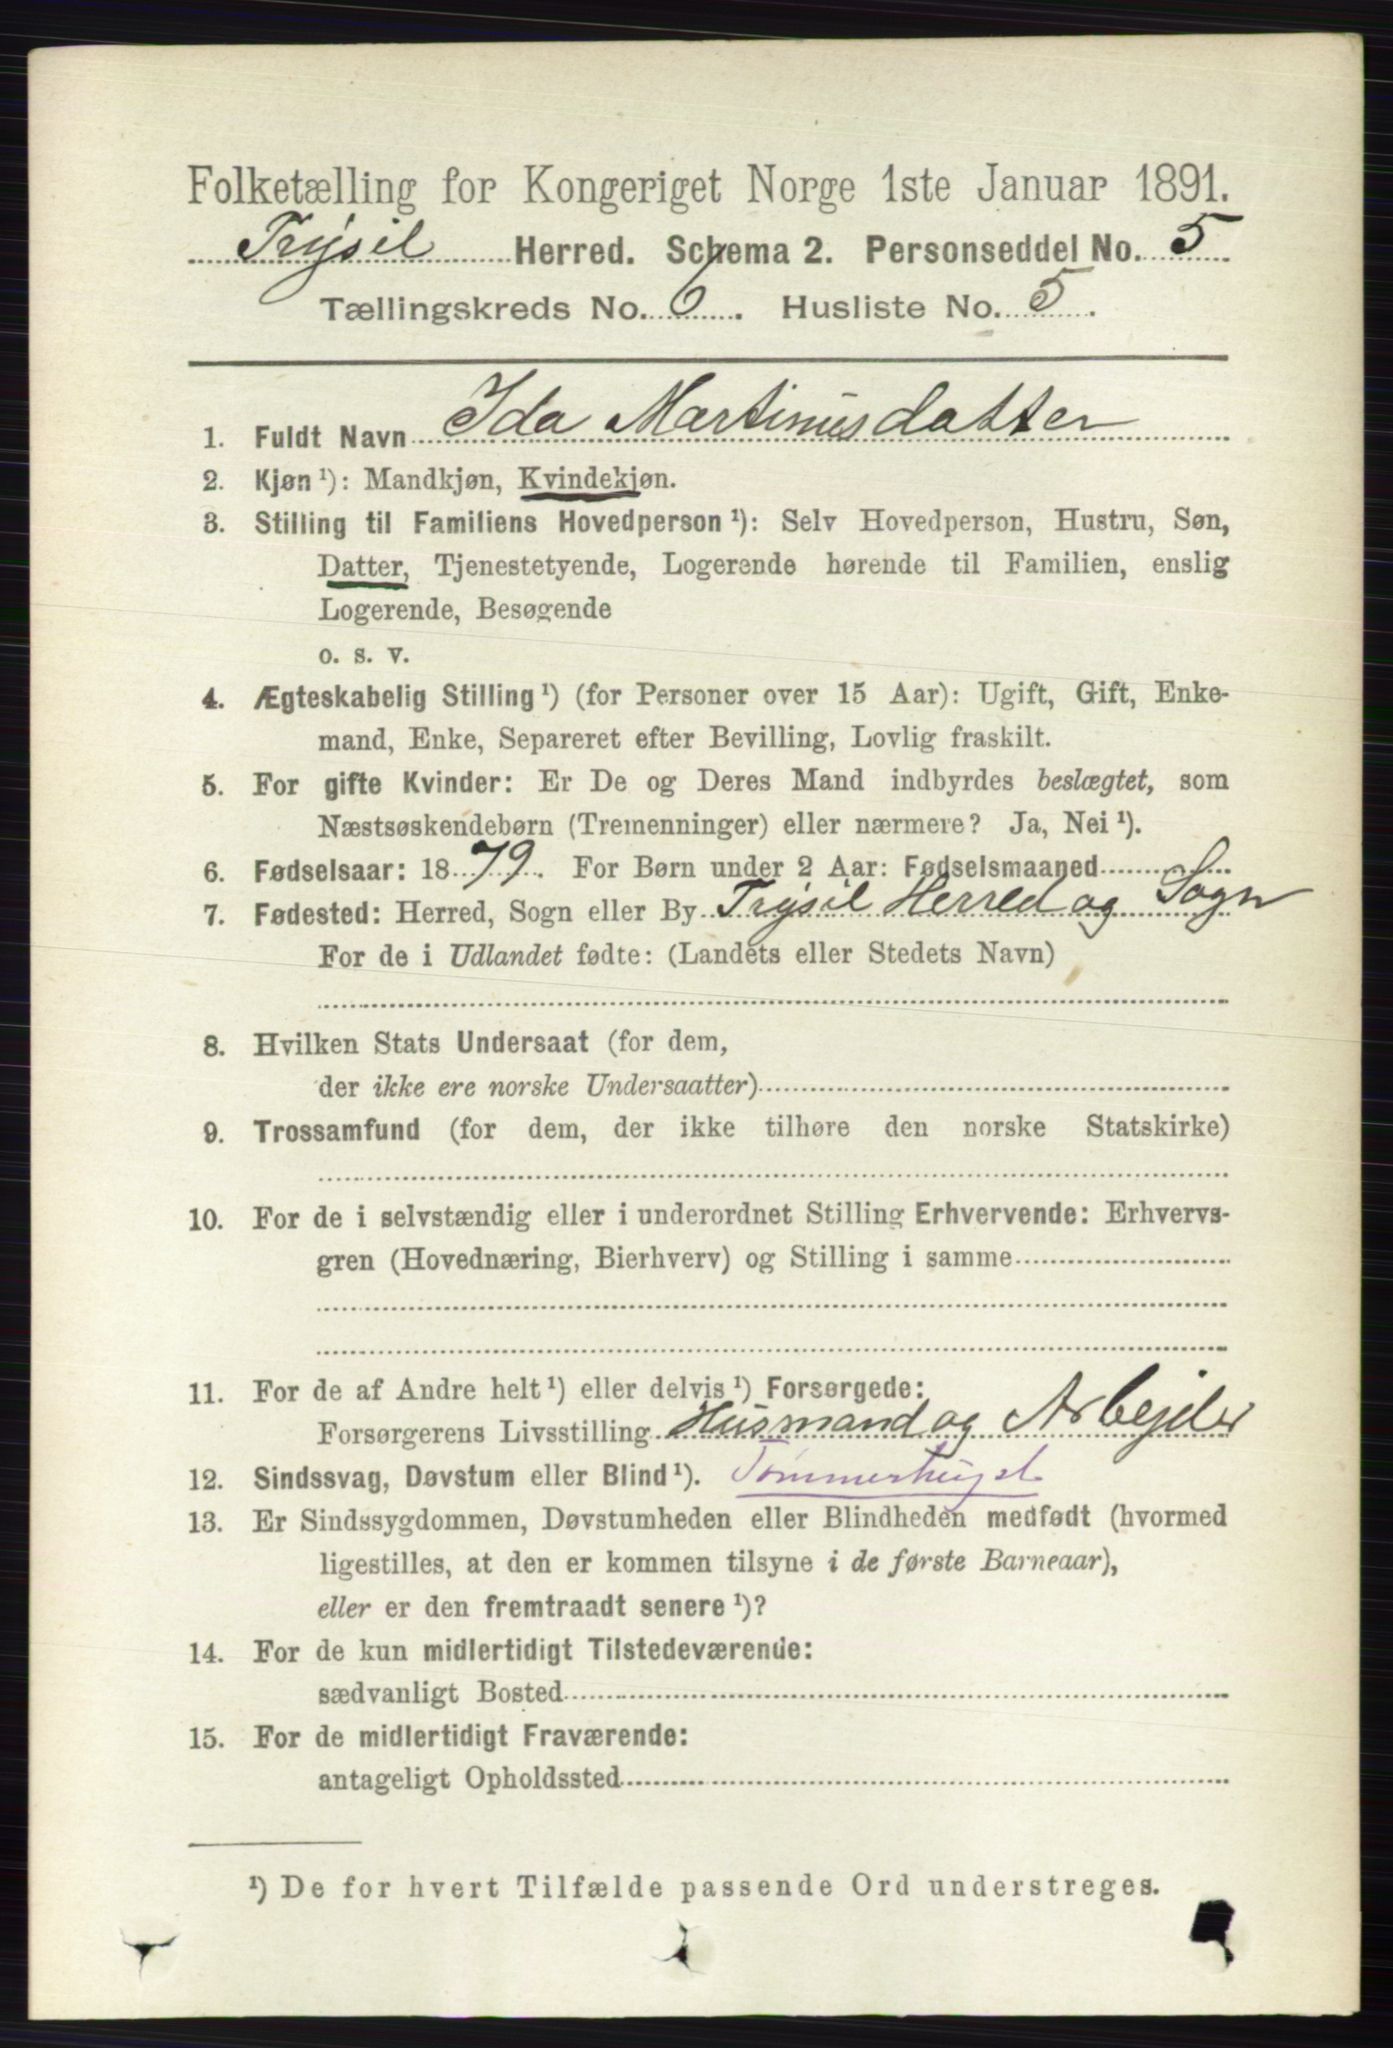 Folketælling for Kongeriget Norge 1ste Januar 1891.
Trysil Herred. Schema 2. Personseddel No. 5
Tællingskreds No. 6. Husliste No. 5.
1. Fuldt Navn Ida Martinusdatter
2. Kjøn ¹): Mandkjøn, Kvindekjøn.
3. Stilling til Familiens Hovedperson ¹): Selv Hovedperson, Hustru, Søn,
Datter, Tjenestetyende, Logerende hørende til Familien, enslig
Logerende, Besøgende
o. s. v.
4. Ægteskabelig Stilling ¹) (for Personer over 15 Aar): Ugift, Gift, Enke-
mand, Enke, Separeret efter Bevilling, Lovlig fraskilt.
5. For gifte Kvinder: Er De og Deres Mand indbyrdes beslægtet, som
Næstsøskendebørn (Tremenninger) eller nærmere? Ja, Nei ¹).
6. Fødselsaar: 1879. For Børn under 2 Aar: Fødselsmaaned
7. Fødested: Herred, Sogn eller By Trysil Herred og Sogn
For de i Udlandet fødte: (Landets eller Stedets Navn)
8. Hvilken Stats Undersaat (for dem,
der ikke ere norske Undersaatter)
9. Trossamfund (for dem, der ikke tilhøre den norske Statskirke)
10. For de i selvstændig eller i underordnet Stilling Erhvervende: Erhvervs-
gren (Hovednæring, Bierhverv) og Stilling i samme
11. For de af Andre helt ¹) eller delvis ¹) Forsørgede:
Forsørgerens Livsstilling Husmand og Arbejder
12. Sindssvag, Døvstum eller Blind ¹). Tømmerhugst
13. Er Sindssygdommen, Døvstumheden eller Blindheden medfødt (hvormed
ligestilles, at den er kommen tilsyne i de første Barneaar),
eller er den fremtraadt senere ¹)?
14. For de kun midlertidigt Tilstedeværende:
sædvanligt Bosted
15. For de midlertidigt Fraværende:
antageligt Opholdssted
¹) De for hvert Tilfælde passende Ord understreges.